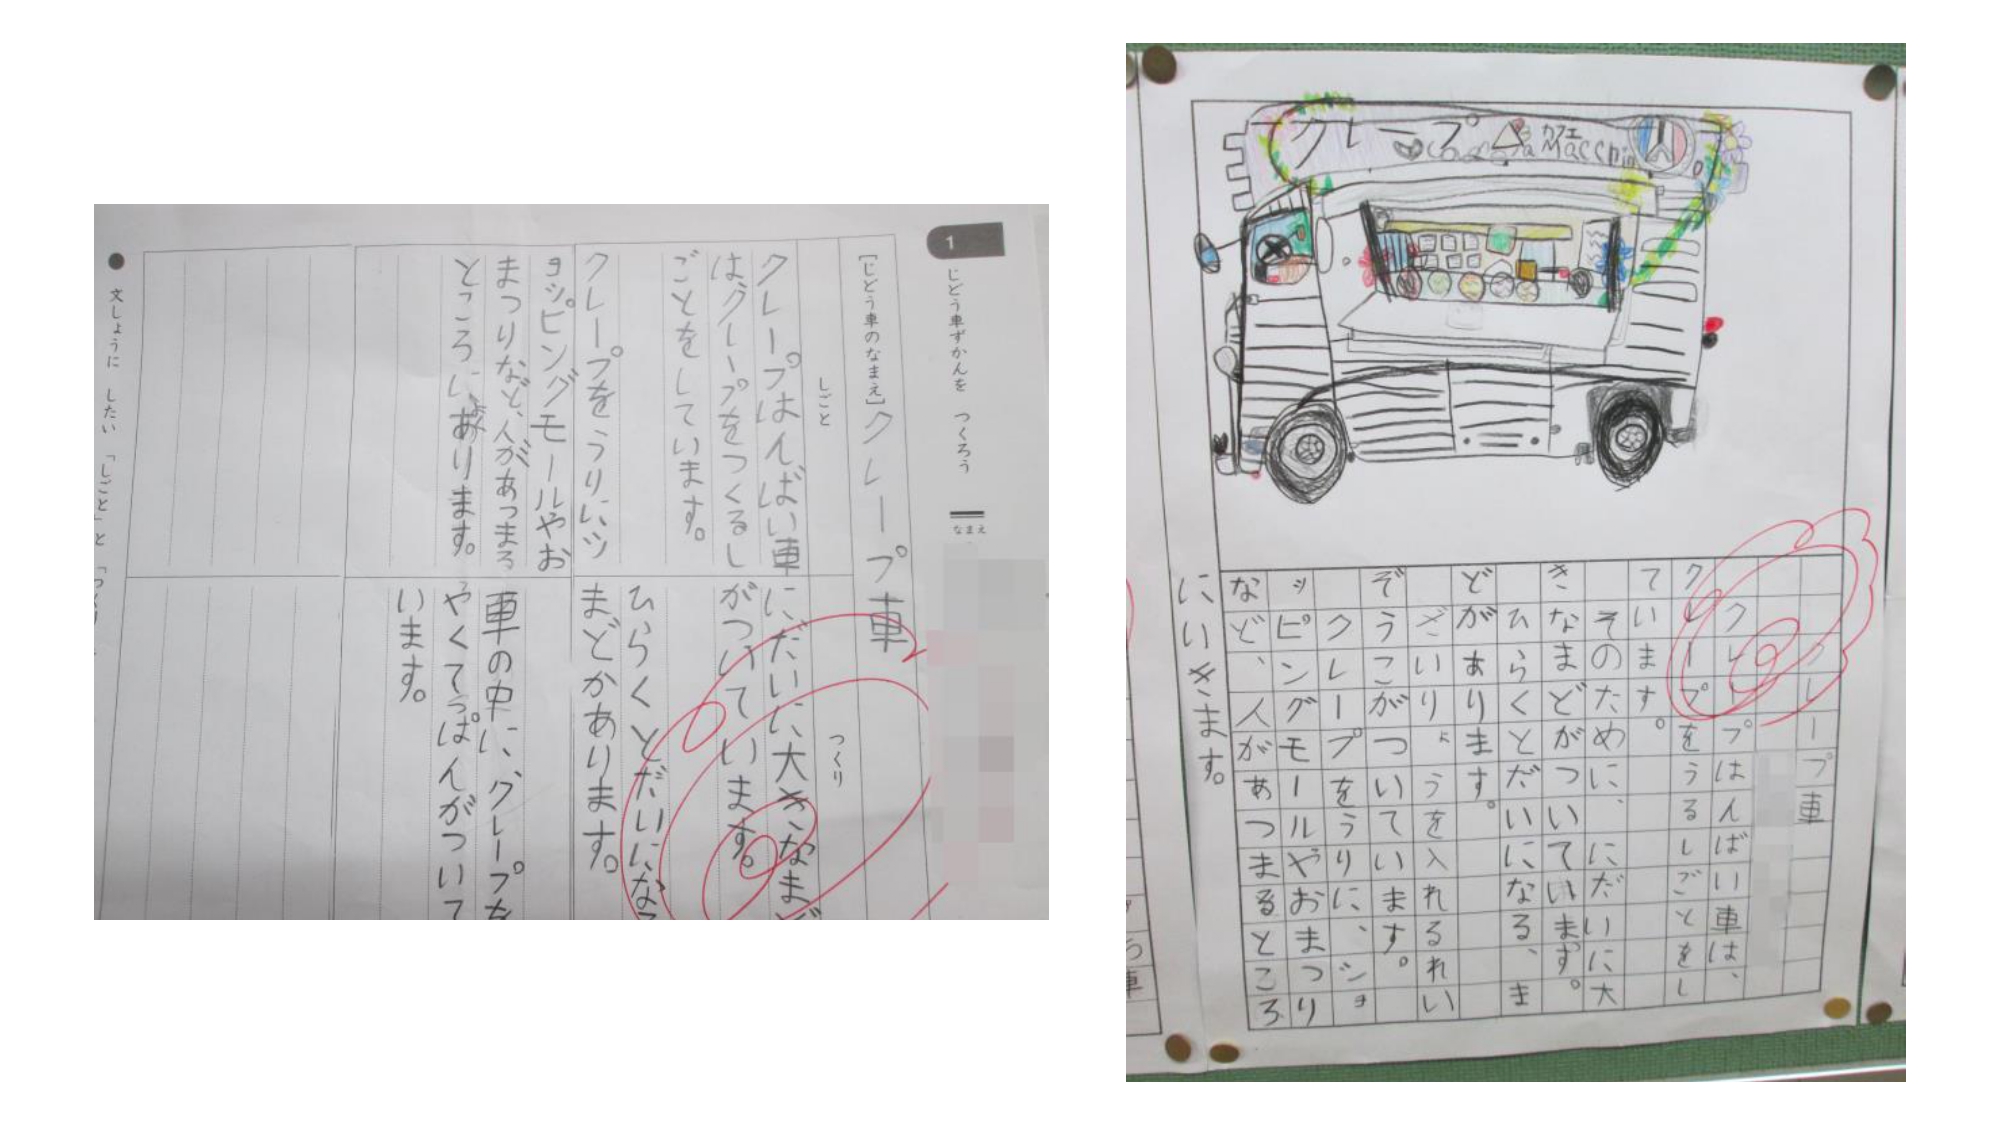 1
じどう車ずかんを つくろう
なまえ
[じどう車のなまえ]クレープ車
しごと
クレープはんばい車
は、クレープをつくるし
ごとをしています。
クレープをうりに、ツ
ョッピングモールやお
まつりなど、人があつまろ
ところにあります。
つくり
にだいに大きなまど
がついています。
ひらくとだいになる
まどがあります。
車の中に、クレープを
やくてっぱんがついて
います。
●文しょうに したい 「しごと」と 「つく
クレープ
カフェ
クレープ車
クレープはんばい車は、
クレープをうるしごとをし
ています。
そのために、にだいに大
きなまどがついています。
ひらくとだいになる、ま
どがあります。
ざいりょうを入れるれい
ぞうこがついています。
クレープをうりに、ショ
ッピングモールやおまつり
など、人があつまるところ
にいきます。